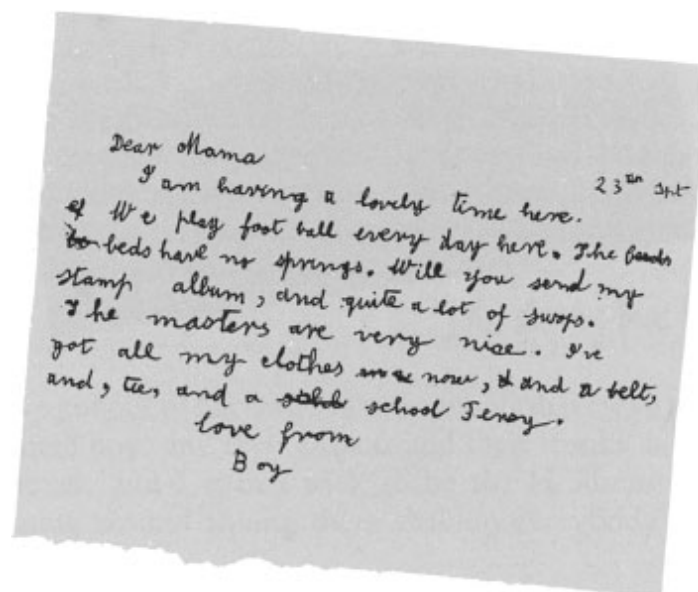 Dear Mama
23th Spt
I am having a lovely time here.
We play foot ball every day here. The beeds
beds have no springs. Will you send my
stamp album, and quite a lot of swops.
The masters are very nice. I've
got all my clothes now, & and a belt,
and, tie, and a school Jersy.
love from
Boy